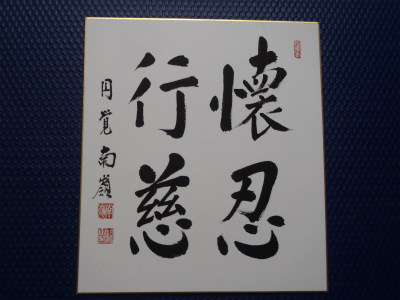 懐忍
行慈
円覚南嶺